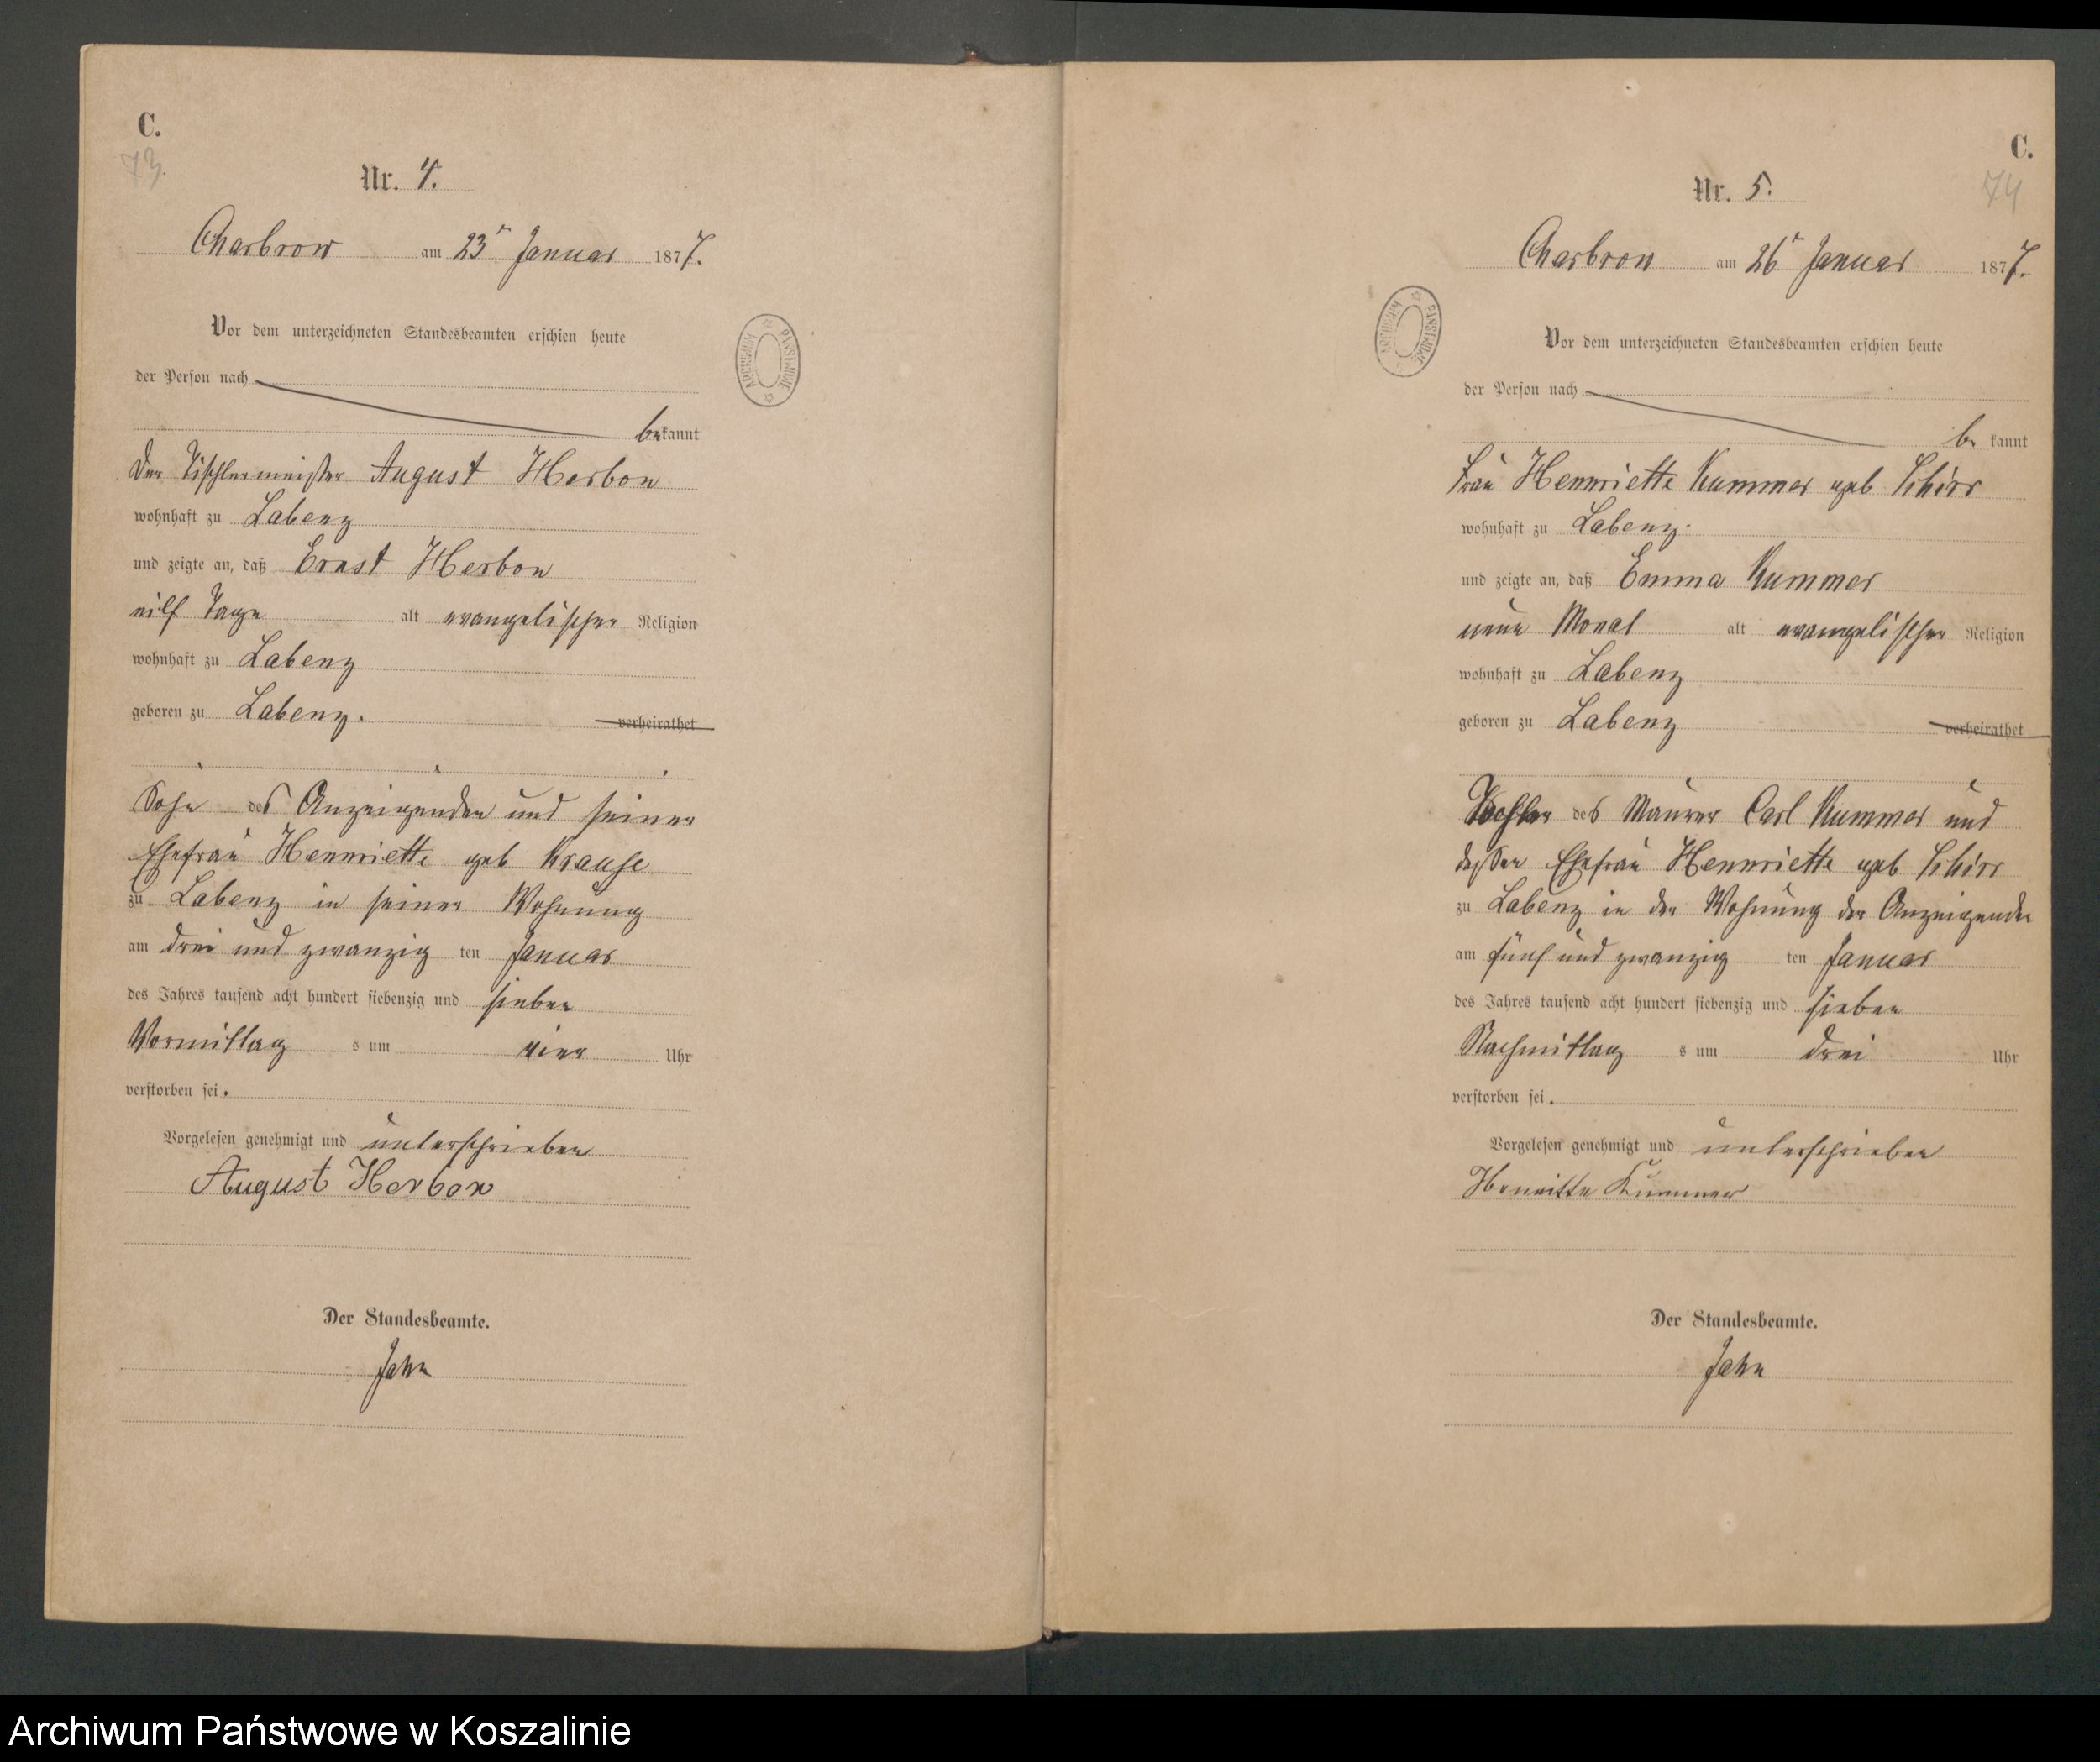 C.
73.
Nr. 4.
Charbrow am 23ⁿ Januar 1877.
Vor dem unterzeichneten Standesbeamten erschien heute
der Person nach
bekannt
Der Tischlermeister August Herbon
wohnhaft zu Labenz
und zeigte an, daß Ernst Herbon
eilf Tage alt evangelischer Religion
wohnhaft zu Labenz
geboren zu Labenz. verheirathet
Sohn des Anzeigenden und seiner
Ehefrau Hennriette geb Krause
zu Labenz in seiner Wohnung
am drei und zwanzig ten Januar
des Jahres tausend acht hundert siebenzig und sieben
Vormittag s um vier Uhr
verstorben sei.
Vorgelesen genehmigt und unterschrieben
August Herbon
Der Standesbeamte.
Jahn
ARCHIWUM PAŃSTWOWE
C.
74
Nr. 5.
Charbrow am 26ⁿ Januar 1877.
Vor dem unterzeichneten Standesbeamten erschien heute
der Person nach
be kannt
Frau Hennriette Kummer geb Schirr
wohnhaft zu Labenz.
und zeigte an, daß Emma Kummer
neun Monat alt evangelischer Religion
wohnhaft zu Labenz
geboren zu Labenz verheirathet
Tochter des Maurer Carl Kummer und
dessen Ehefrau Hennriette geb Schirr
zu Labenz in der Wohnung der Anzeigenden
am fünf und zwanzig ten Januar
des Jahres tausend acht hundert siebenzig und sieben
Nachmittag s um drei Uhr
verstorben sei.
Vorgelesen genehmigt und unterschrieben
Henritte Kummer
Der Standesbeamte.
Jahn
ARCHIWUM PAŃSTWOWE
Archiwum Państwowe w Koszalinie